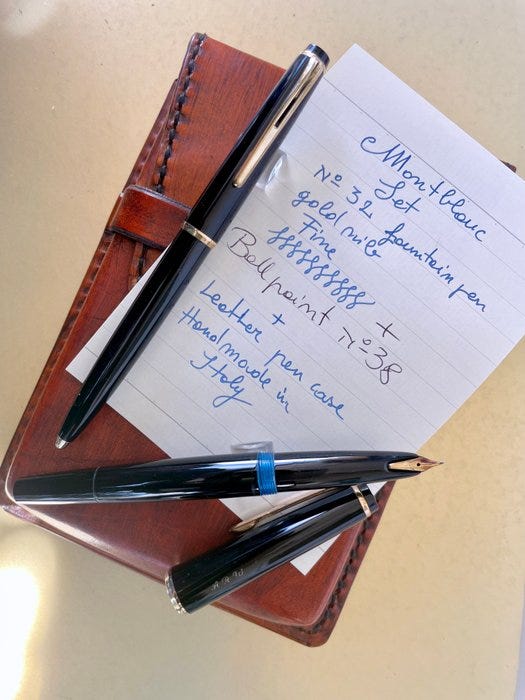 Montblanc
Set
Nº 32 fountain pen
gold nib
Fine
+
Ball point Nº 38
+
Leather pen case
Handmade in
Italy